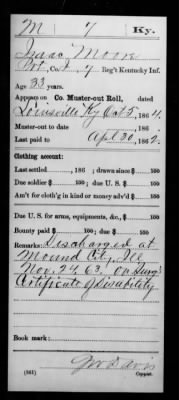 M 7 Ky.
Isaac Moore
Pvt, Co. I, 7 Reg't Kentucky Inf.
Age 33 years.
Appears on Co. Muster-out Roll, dated
Louisville Ky Oct 5, 1864.
Muster-out to date , 186 .
Last paid to Apl 30, 1862.
Clothing account:
Last settled , 186 ; drawn since $ 100
Due soldier $ 100; due U. S. $ 100
Am't for cloth'g in kind or money adv'd $ 100
Due U. S. for arms, equipments, &c., $ 100
Bounty paid $ 100; due $ 100
Remarks: Discharged at
Mound City, Ill
Nov. 24 63, on Surg's
Certificate of Disability
Book mark:
(361) Copyist.